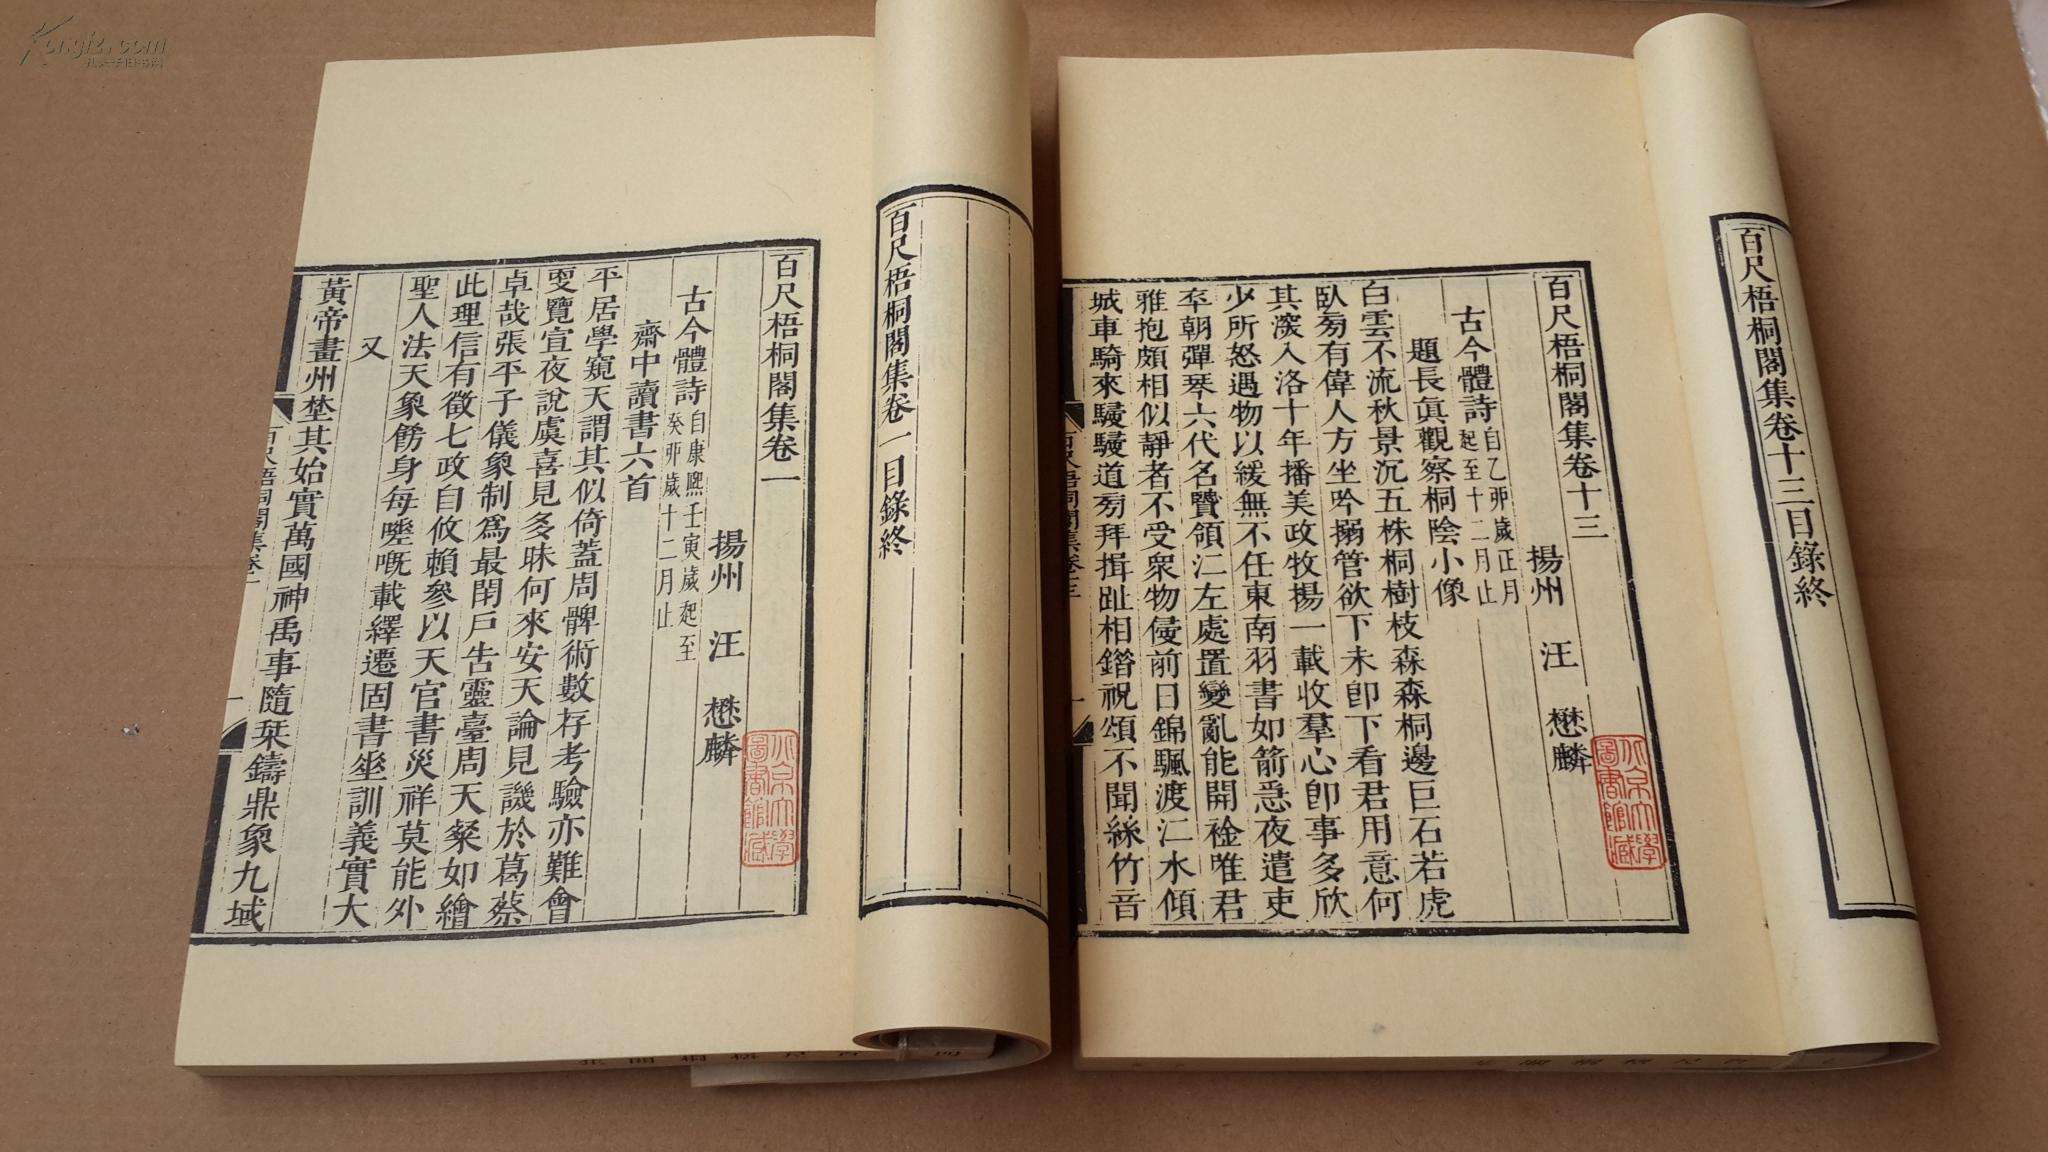 Kongfz.com
百尺梧桐閣集卷十三目錄終
百尺梧桐閣集卷十三
揚州 汪 懋麟
古今體詩 自乙卯歲正月
起至十二月止
題長眞觀察桐陰小像
白雲不流秋景沉五株桐樹枝森森桐邊巨石若虎
臥旁有偉人方坐吟搦管欲下未卽下看君用意何
其深入洛十年播美政牧揚一載收羣心卽事多欣
少所怒遇物以緩無不任東南羽書如箭急夜遣吏
卒朝彈琴六代名賢領江左處置變亂能開襟唯君
雅抱頗相似靜者不受衆物侵前日錦颿渡江水傾
城車騎來駸駸道旁拜揖趾相錯祝頌不聞絲竹音
百尺梧桐閣集卷一目錄終
百尺梧桐閣集卷一
揚州 汪 懋麟
古今體詩 自康熙壬寅歲起至
癸卯歲十二月止
齋中讀書六首
平居學窺天謂其似倚蓋周髀術數存考驗亦難會
更覽宣夜說虞喜見多昧何來安天論見譏於葛蔡
卓哉張平子儀象制爲最閉戶吿靈臺周天粲如繪
此理信有徵七政自攸賴參以天官書災祥莫能外
聖人法天象飭身每嘅載繹遷固書坐訓義實大
又
黃帝畫州埜其始實萬國神禹事隨栞鑄鼎象九域
北京大學圖書館藏